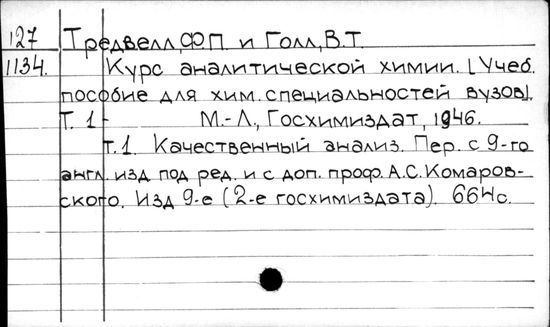 127 Тредвелл, Ф.П. и Голл, В.Т.
1134. Курс аналитической химии. [Учеб.
пособие для хим. специальностей вузов].
Т. 1- М.-Л., Госхимиздат, 1946.
т. 1. Качественный анализ. Пер. с 9-го
англ. изд под ред. и с доп. проф. А.С. Комаров-
ского. Изд 9-е (2-е госхимиздата). 664с.